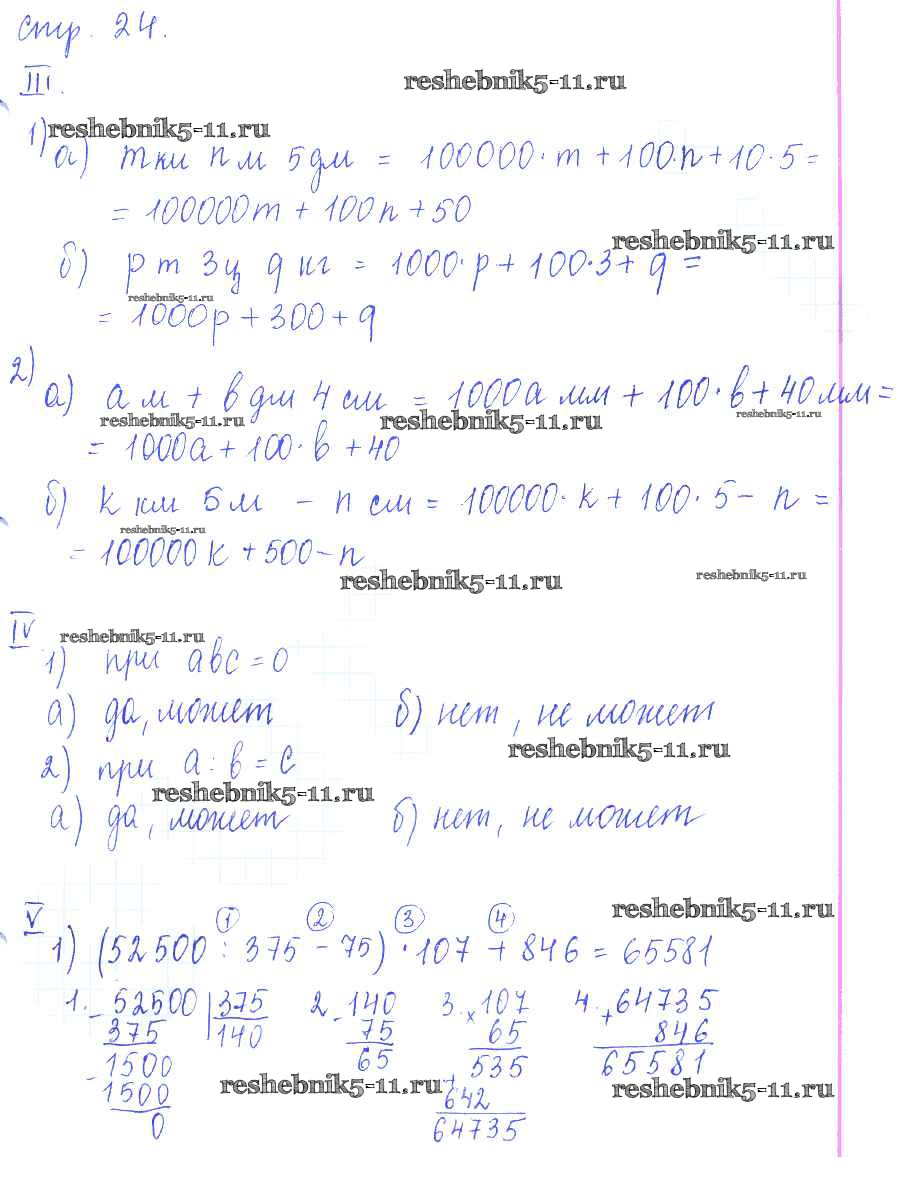 стр. 24.
III.
reshebnik5-11.ru
1) reshebnik5-11.ru
а) m км n м 5 дм = 100000·m + 100·n + 10·5 =
= 100000m + 100n + 50
reshebnik5-11.ru
б) p т 3ц q кг = 1000·p + 100·3 + q =
reshebnik5-11.ru
= 1000p + 300 + q
2)
а) a м + b дм 4 см = 1000a мм + 100·b + 40 мм =
reshebnik5-11.ru reshebnik5-11.ru reshebnik5-11.ru
= 1000a + 100·b + 40
б) k км 5 м - n см = 100000·k + 100·5 - n =
reshebnik5-11.ru
= 100000k + 500 - n
reshebnik5-11.ru reshebnik5-11.ru
IV reshebnik5-11.ru
1) при abc = 0
а) да, может б) нет, не может
reshebnik5-11.ru
2) при a : b = c
reshebnik5-11.ru
а) да, может б) нет, не может
V reshebnik5-11.ru
1 2 3 4
1) (52500 : 375 - 75) · 107 + 846 = 65581
1. - 52500 | 375 2. - 140 3. × 107 4. + 64735
375 140 75 65 846
- 1500 65 + 535 65581
1500 reshebnik5-11.ru 642 reshebnik5-11.ru
0 64735